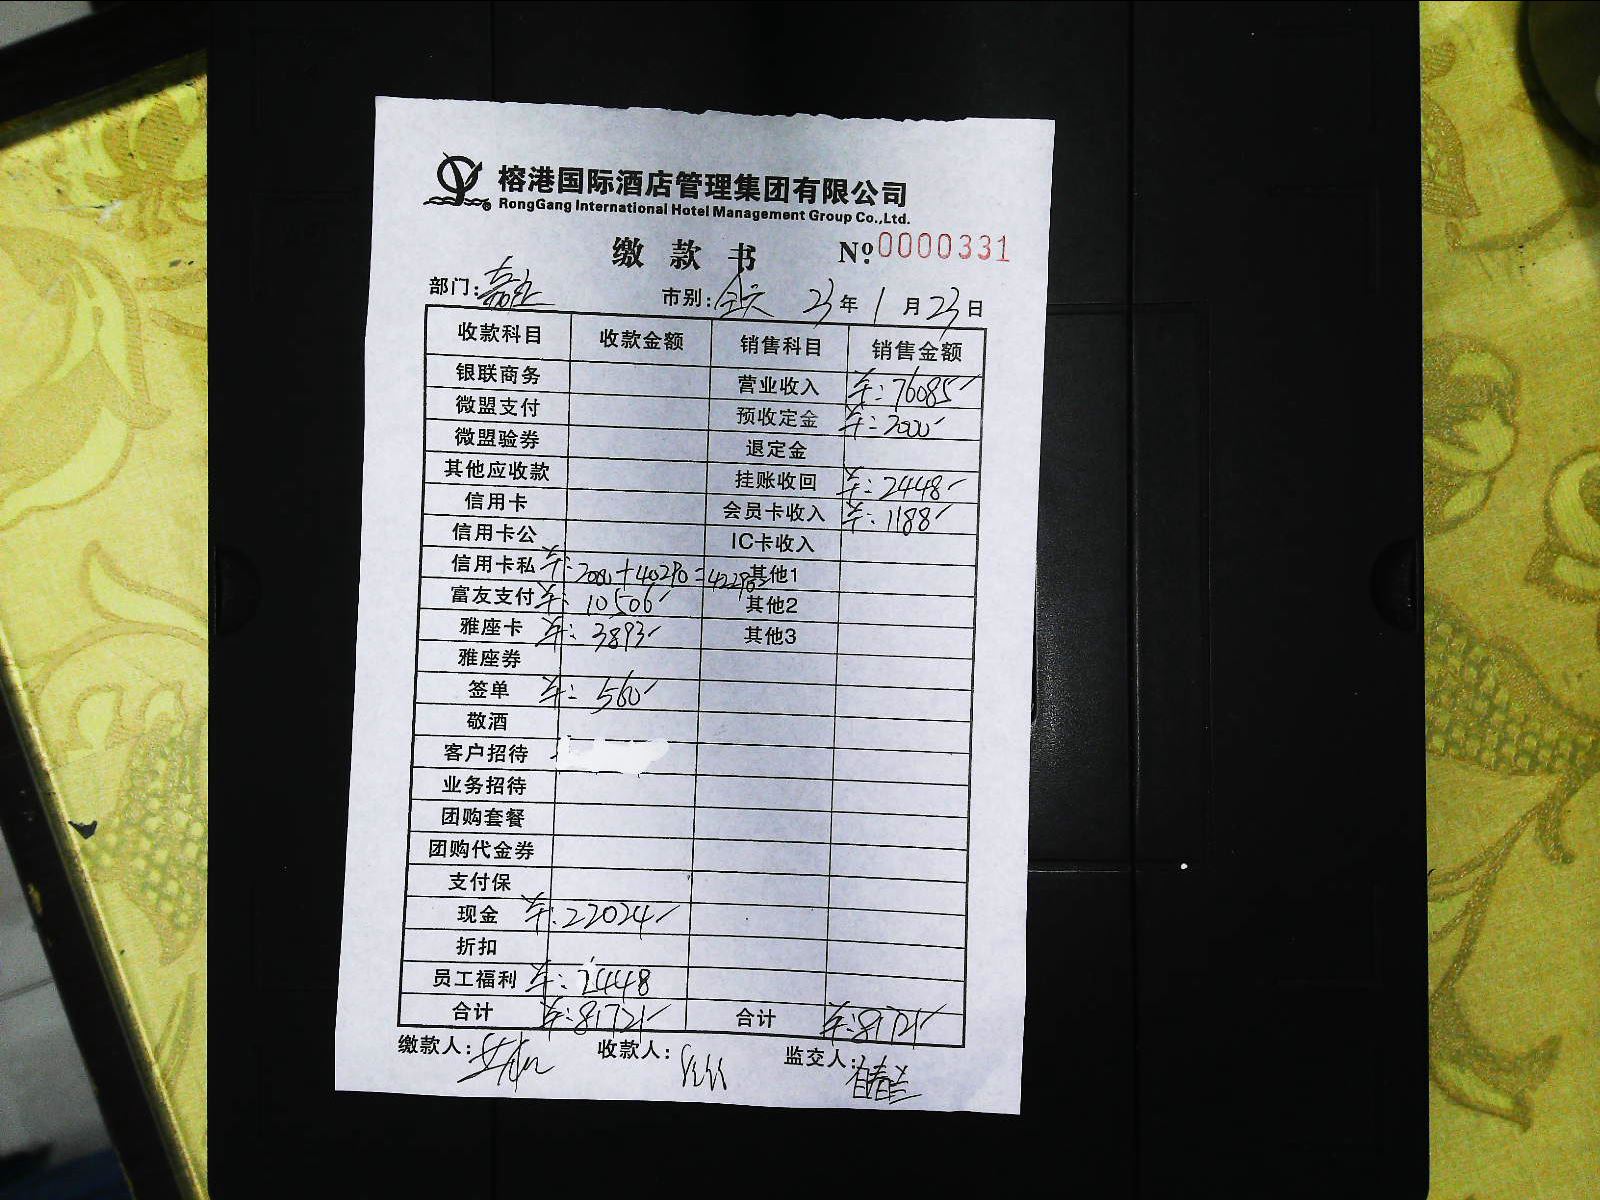 榕港国际酒店管理集团有限公司
RongGang International Hotel Management Group Co.,Ltd.
缴款书 Nº:0000331
部门: 市别:全天 23年1月23日
收款科目 收款金额 销售科目 销售金额
银联商务 营业收入 ¥:76085
微盟支付 预收定金 ¥:2000
微盟验券 退定金
其他应收款 挂账收回 ¥:2448
信用卡 会员卡收入 ¥:1188
信用卡公 IC卡收入
信用卡私 ¥:2000+40290=42290 其他1
富友支付 ¥:10506 其他2
雅座卡 ¥:3893 其他3
雅座券
签单 ¥:560
敬酒
客户招待
业务招待
团购套餐
团购代金券
支付保
现金 ¥:22024
折扣
员工福利 ¥:2448
合计 ¥:81721 合计 ¥:81721
缴款人: 收款人: 监交人: